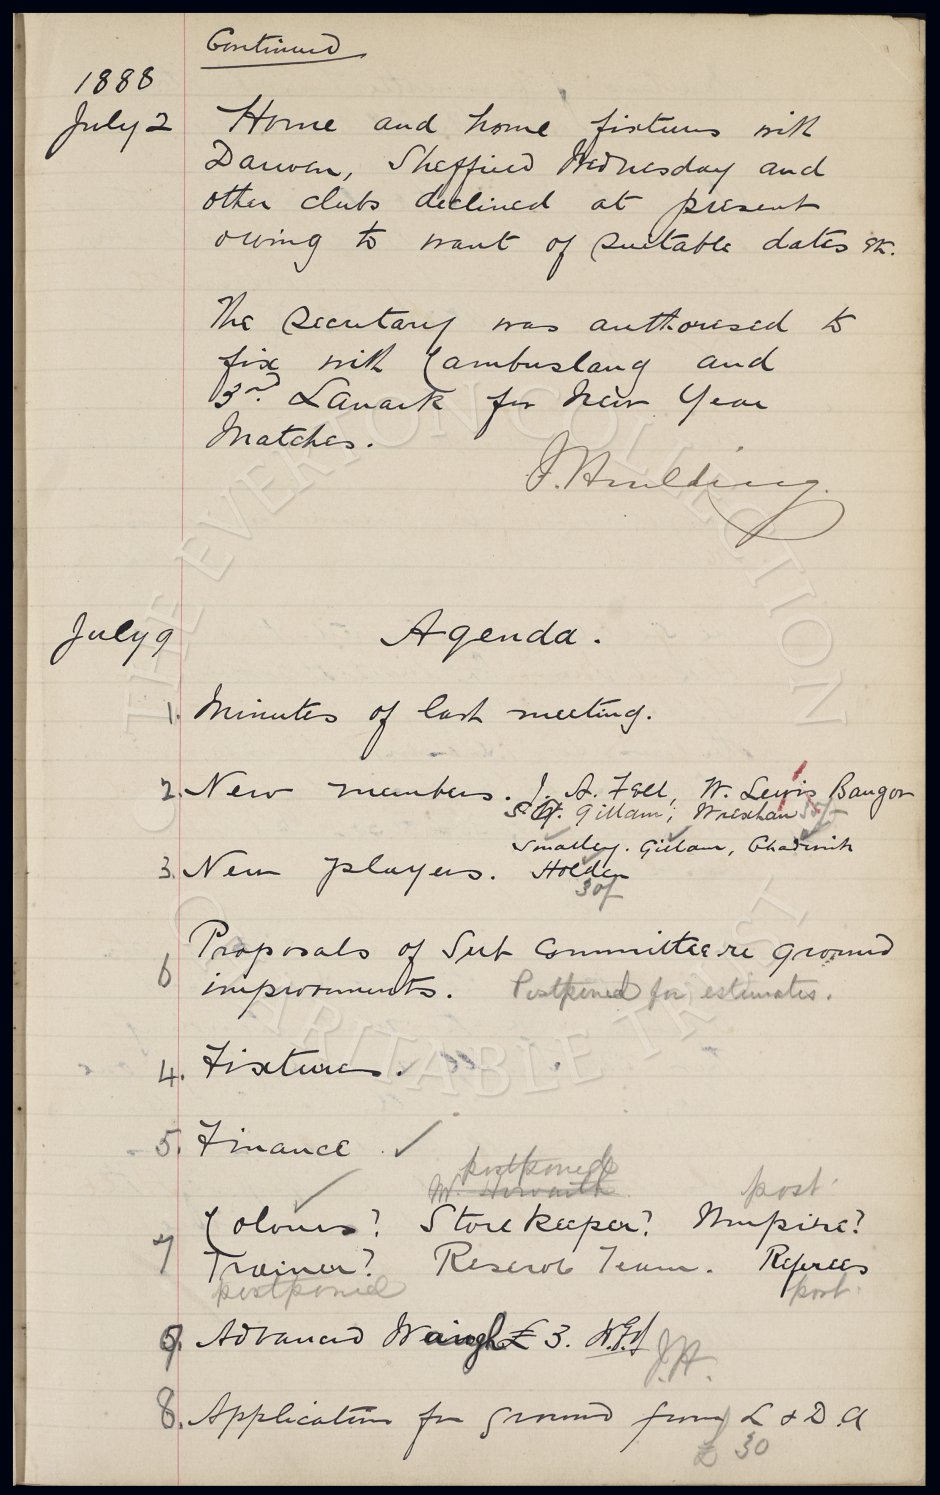 Continued
1888
July 2 Home and home fixtures with
Darwen, Sheffield Wednesday and
other clubs declined at present
owing to want of suitable dates &c.
The Secretary was authorised to
fix with Cambuslang and
3rd Lanark for New Year
Matches.
J. Houlding
July 9 Agenda.
1. Minutes of last meeting.
2. New members. J. A. Fell, W. Lewis Bangor
S. G. Gillam, Wrexham 35/-
Smalley. Gillam, Chadwick
3. New players. Holden
30/
6 Proposals of Sub Committee re ground
improvements. Postponed for estimates.
4. Fixtures.
5. Finance ✓
postponed
W. Howarth post
7 Colours? Storekeeper? Umpire?
Trainer? Reserve Team. Referees
postponed post.
9. Advanced Waugh £3.
J.H.
8. Application for ground from L & D A
£ 30
THE EVERTON COLLECTION
CHARITABLE TRUST